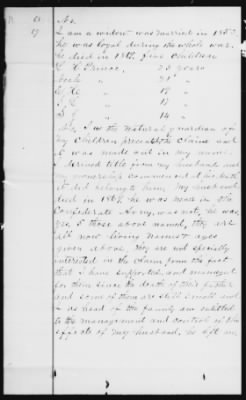 16 No.
17 I am a widow, was married in 185
he was loyal during the whole war.
he died in 1867, five children
Prince, 23 years
Jack 21 "
19 "
17 "
14 "
No, I is the natural guardian of
my children presented the claim and
it was made out in my name.
I derived title from my husband and
my ownership commenced at his death
it did belong to him, my husband
died in 1867, he was none in the
Confederate Army, was not, he was
yes, those above named, they are
all now living names & ages
given above, they are not specially
interested in the claim from the fact
that I have supported, and managed
for them since the death of their father
and some of them are still small and
as head of the family am entitled
to the management and control of the
effects of my husband, he left